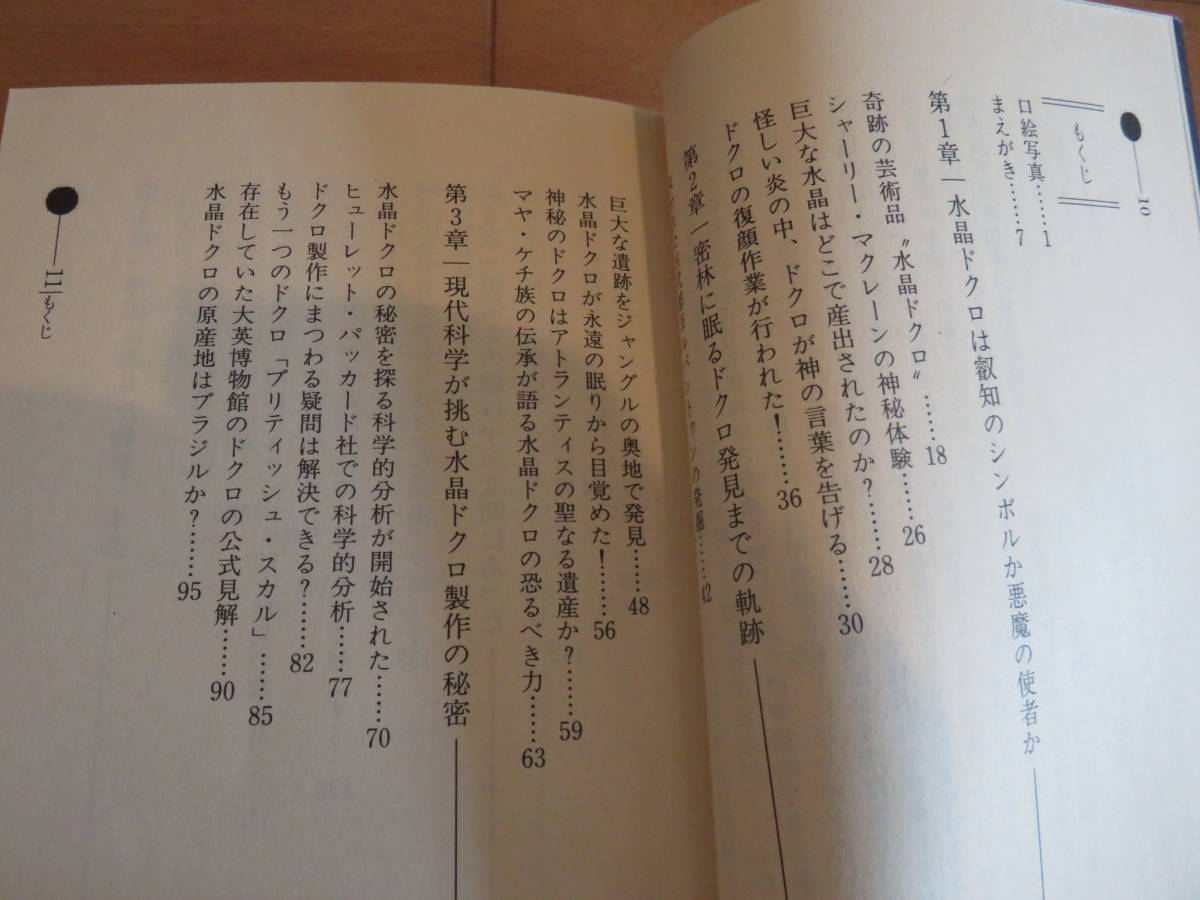 10
もくじ
口絵写真……1
まえがき……7
第1章―水晶ドクロは叡知のシンボルか悪魔の使者か
奇跡の芸術品〝水晶ドクロ〟……18
シャーリー・マクレーンの神秘体験……26
巨大な水晶はどこで産出されたのか?……28
巨大な水晶の中、ドクロが神の言葉を告げる……30
ドクロの復顔作業が行われた!……36
第2章―密林に眠るドクロ発見までの軌跡
の発掘……42
巨大な遺跡をジャングルの奥地で発見……48
水晶ドクロが永遠の眠りから目覚めた!……56
神秘のドクロはアトランティスの聖なる遺産か?……59
マヤ・ケチ族の伝承が語る水晶ドクロの恐るべき力……63
第3章―現代科学が挑む水晶ドクロ製作の秘密
水晶ドクロの秘密を探る科学的分析が開始された……70
ヒューレット・パッカード社での科学的分析……77
ドクロ製作にまつわる疑問は解決できる?……82
もう一つのドクロ「ブリティッシュ・スカル」……85
存在していた大英博物館のドクロの公式見解……90
水晶ドクロの原産地はブラジルか?……95
11 もくじ